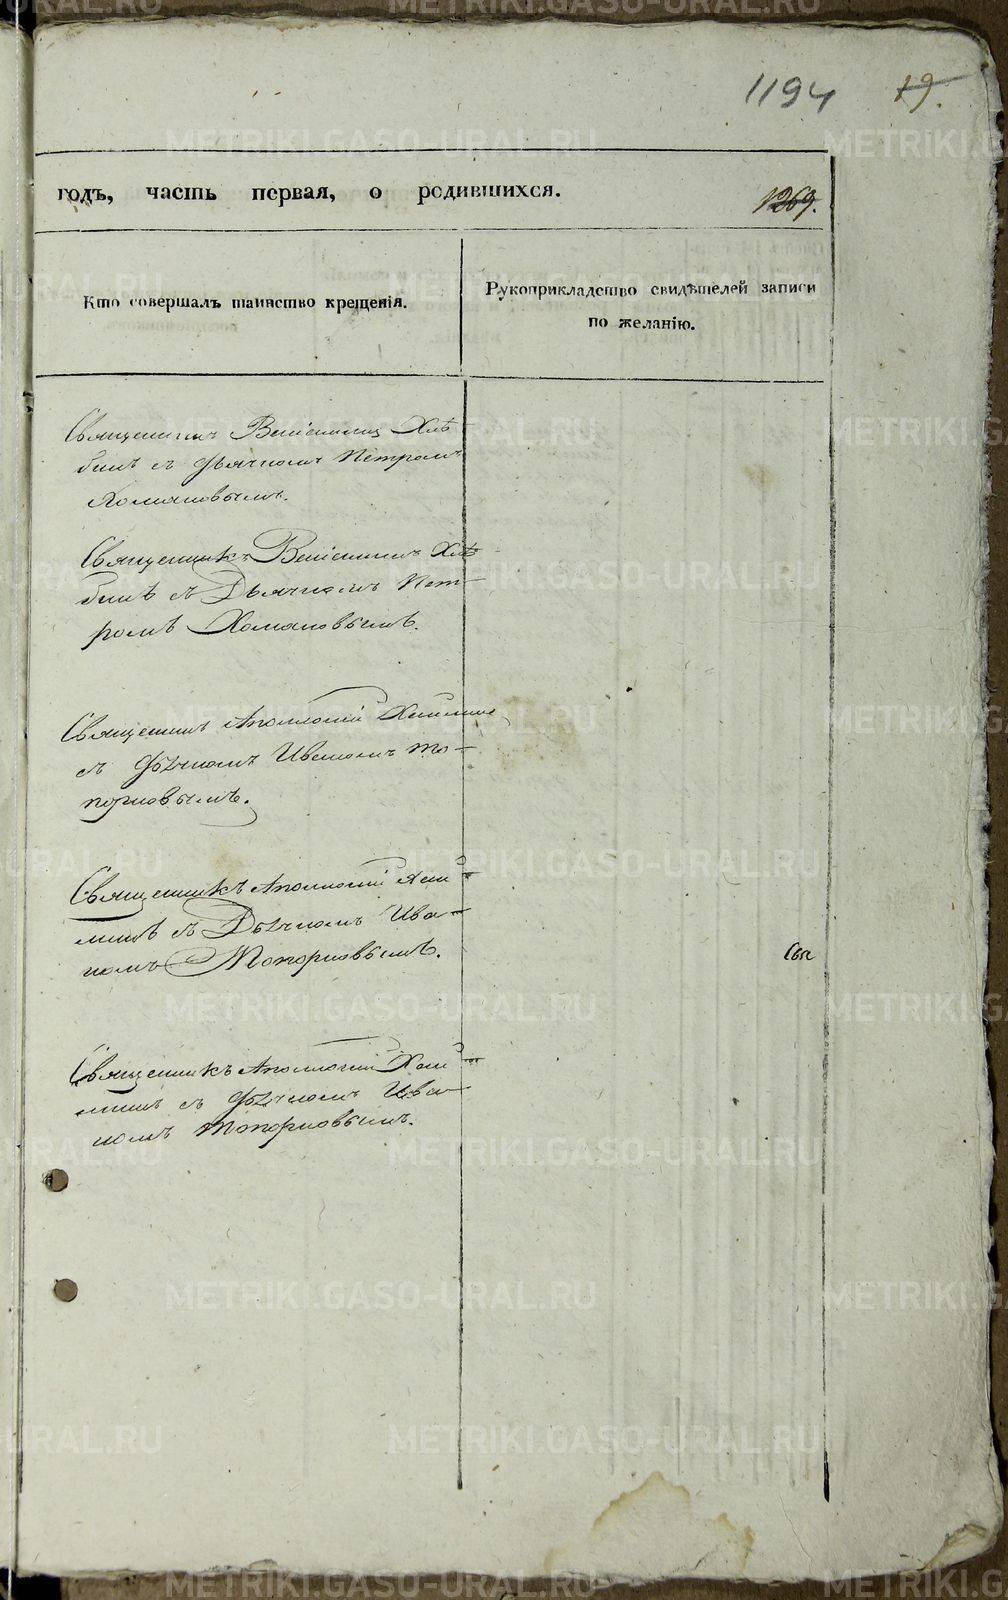 1194 19.
годъ, часть первая, о родившихся.
1269.
Кто совершалъ таинство крещенія.
Рукоприкладство свидѣтелей записи
по желанію.
Священникъ Веніаминъ Хлѣ
бинъ съ Дьячкомъ Петромъ
Хомяковымъ.
Священникъ Веніаминъ Хлѣ
бинъ съ Дьячкомъ Пет-
ромъ Хомяковымъ.
Священникъ Аполлоній
съ Дьячкомъ Иваномъ То-
порковымъ.
Священникъ Аполлоній
съ Дьячкомъ Ива-
номъ Топорковымъ.
Священникъ Аполлоній
съ Дьячкомъ Ива-
номъ Топорковымъ.
METRIKI.GASO-URAL.RU